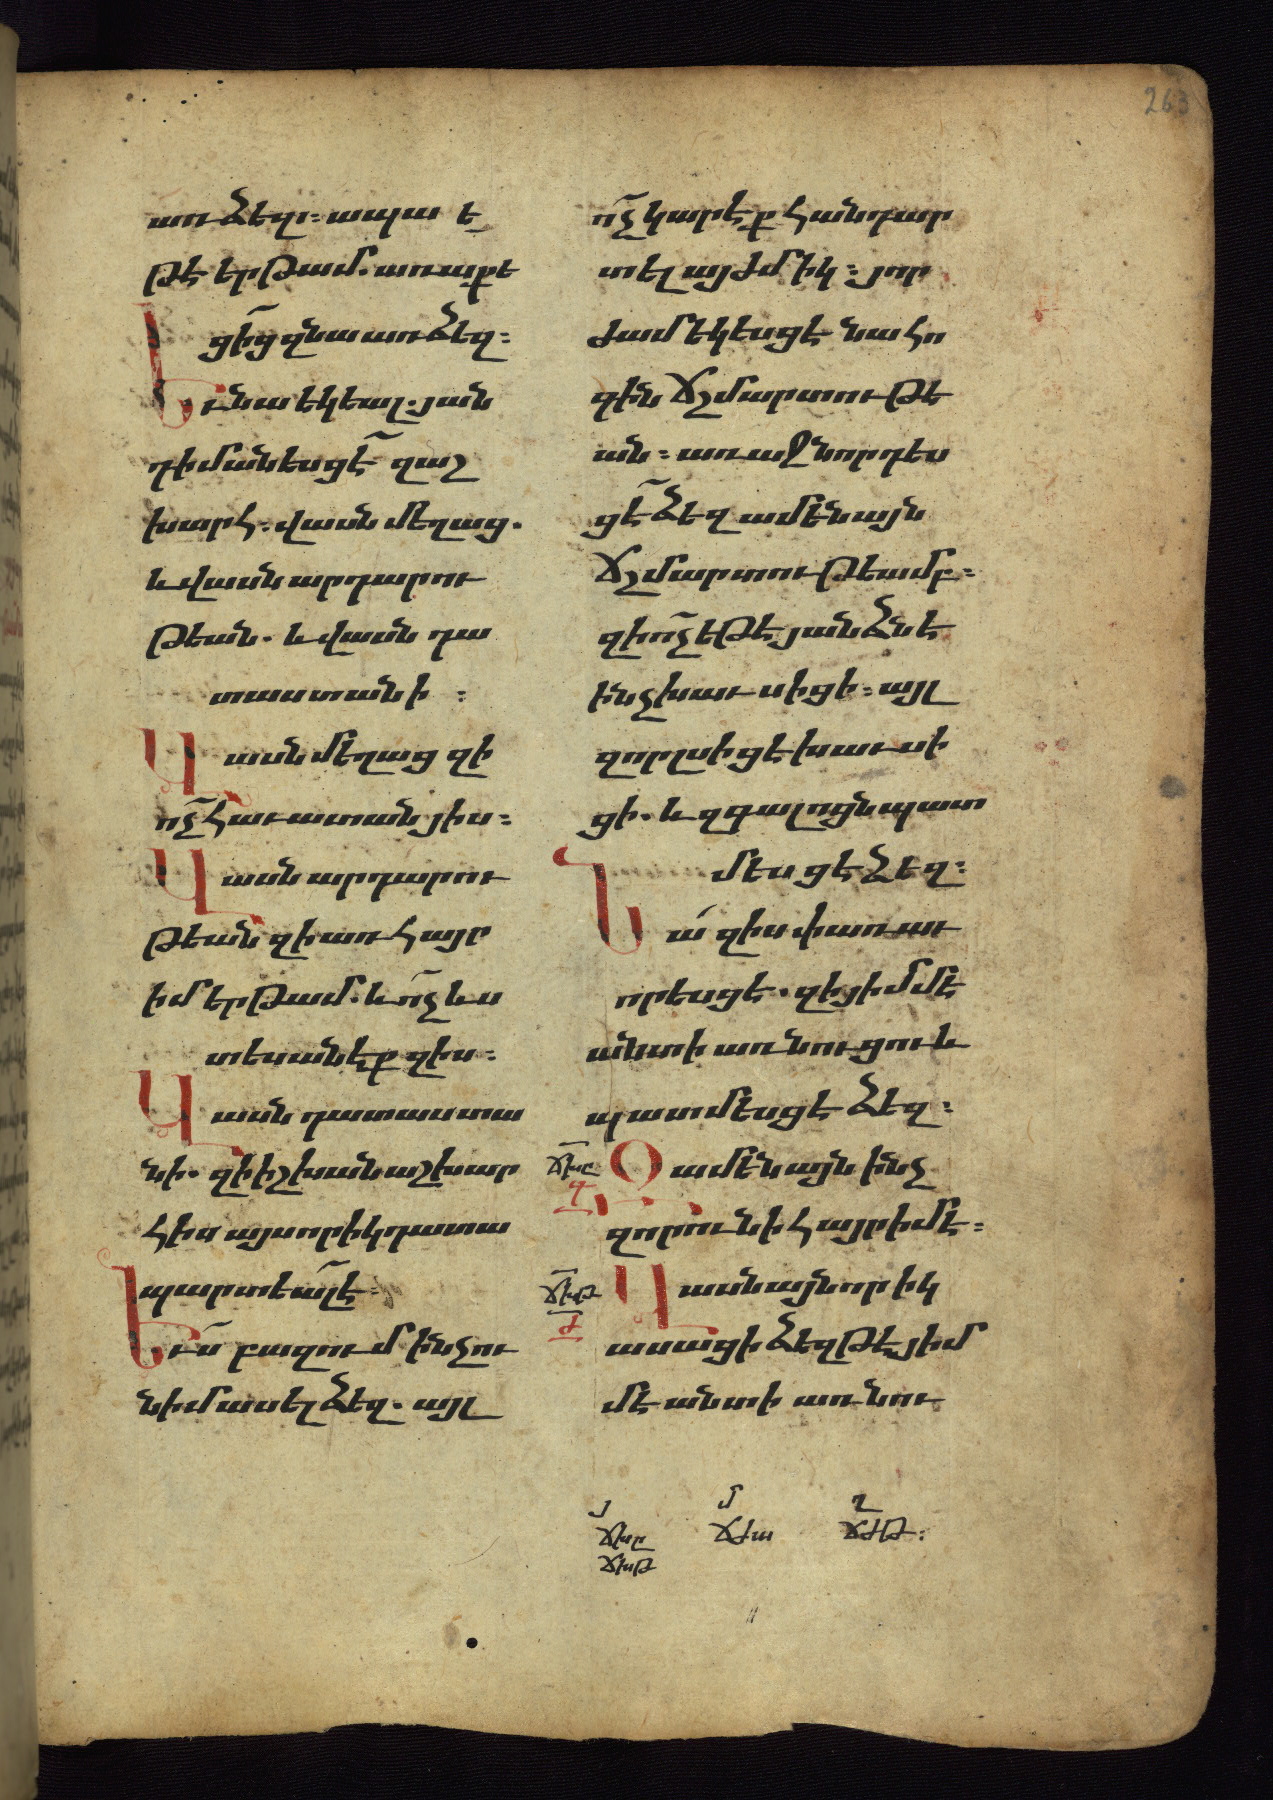 263
առ ձեզ։ ապա ե
թէ երթամ. առաքե
ցից զնա առ ձեզ։
Եւ նա եկեալ. յան
դիմանեսցէ զաշ
խարհ. վասն մեղաց.
և վասն արդարու
թեան. և վասն դա
տաստանի ։
Վասն մեղաց զի
ոչ հաւատան յիս։
Վասն արդարու
թեան զի առ հայր
իմ երթամ. և ոչ ևս
տեսանէք զիս։
Վասն դատաստա
նի. զի իշխան աշխար
հիս այսորիկ դատա
պարտեալ է։
Ես բազում ինչ ու
նիմ ասել ձեզ. այլ
ոչ կարէք հանդար
տել այժմիկ։ յոր
ժամ եկեսցէ նա հո
գին ճշմարտութե
ան։ առաջնորդես
ցէ ձեզ ամենայն
ճշմարտութեամբ։
զի ոչ եթէ յանձնէ
ինչ խաւսիցի։ այլ
զոր լսիցէ խաւսի
ցի. և զգալոցն պատ
մեսցէ ձեզ։
Նա զիս փառաւ
որեսցէ. զի յիմմէ
անտի առնուցու և
պատմեսցէ ձեզ։
ճխը Զ Օ ամենայն ինչ
զոր ունի հայր իմ է։
ճխթ Ժ Վասն այնորիկ
ասացի ձեզ թէ յիմ
մէ անտի առնու
յ մ ղ
ճխը ճժա ճժթ։
ճխթ